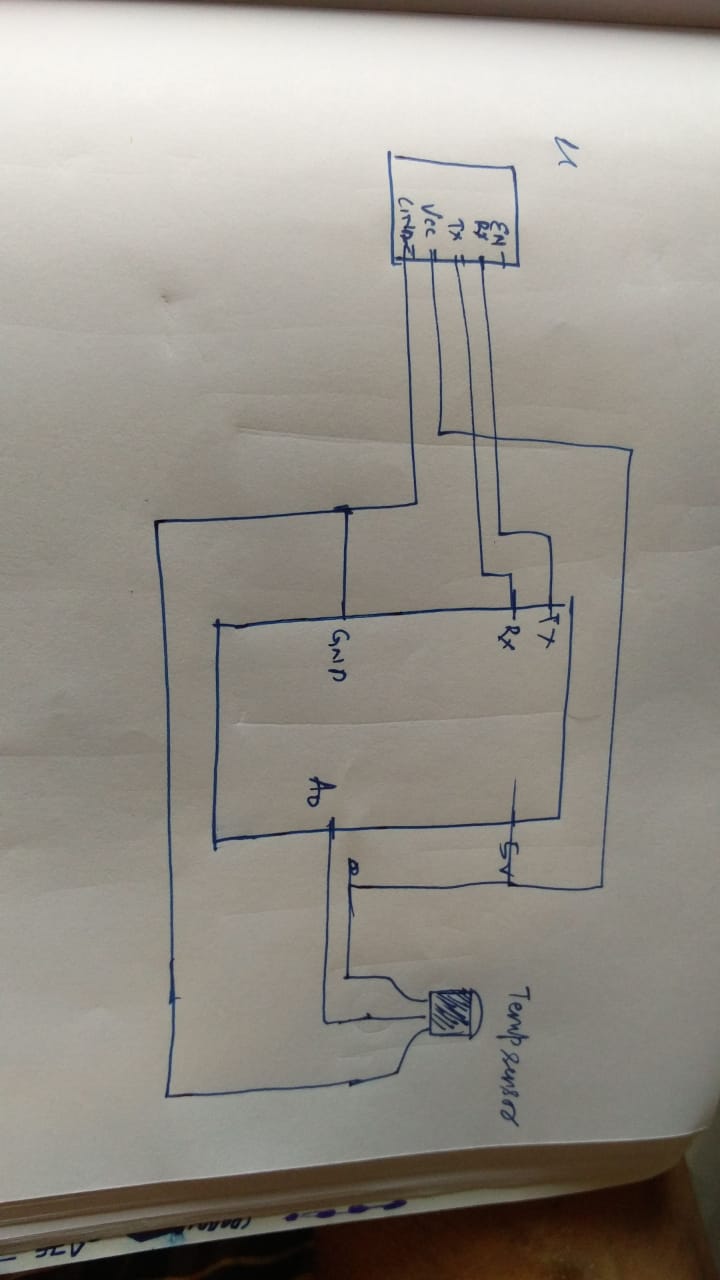 EN
Rx
Tx
Vcc
GND
Tx
Rx
GND
5V
A0
Temp sensor